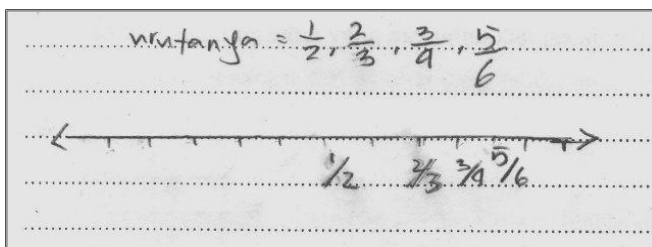 urutanya = 1/2, 2/3, 3/4, 5/6
1/2 2/3 3/4 5/6